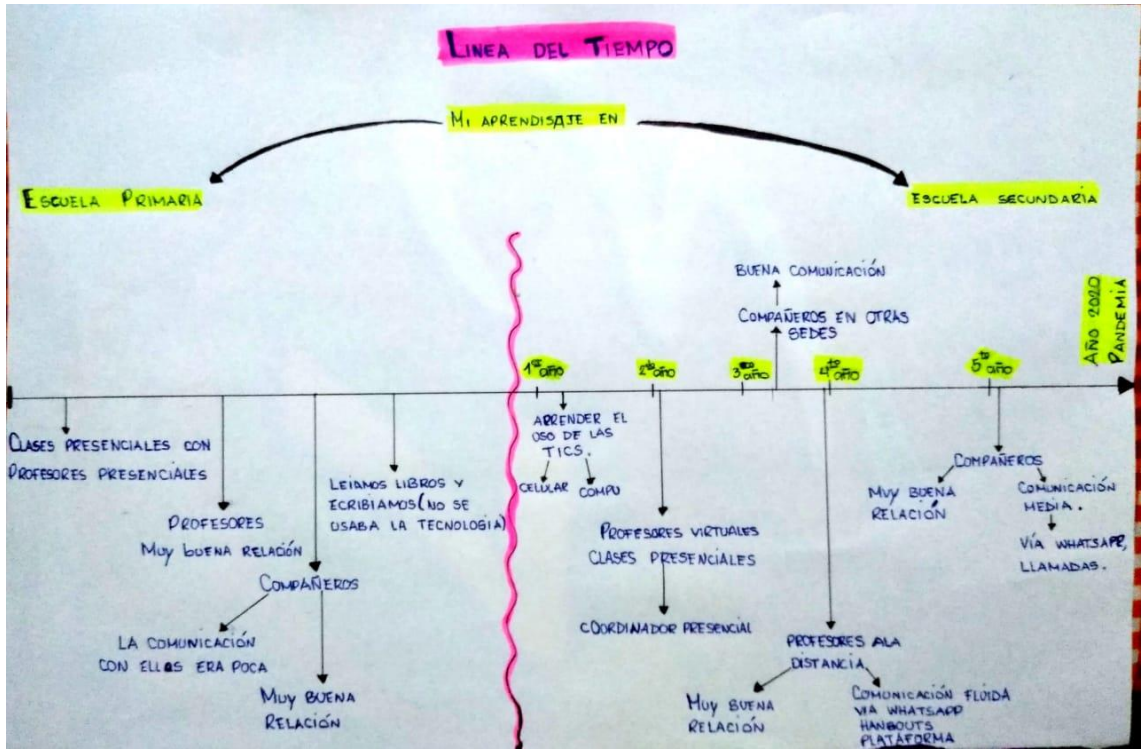 LINEA DEL TIEMPO
MI APRENDISAJE EN
ESCUELA PRIMARIA
ESCUELA SECUNDARIA
CLASES PRESENCIALES CON
PROFESORES PRESENCIALES
PROFESORES
MUY BUENA RELACIÓN
COMPAÑEROS
LA COMUNICACIÓN
CON ELLOS ERA POCA
MUY BUENA
RELACIÓN
LEIAMOS LIBROS Y
ECRIBIAMOS (NO SE
USABA LA TECNOLOGIA)
1er año
APRENDER EL
USO DE LAS
TICS.
CELULAR
COMPU
2do año
PROFESORES VIRTUALES
CLASES PRESENCIALES
COORDINADOR PRESENCIAL
3ero año
BUENA COMUNICACIÓN
COMPAÑEROS EN OTRAS
SEDES
4to año
PROFESORES ALA
DISTANCIA
MUY BUENA
RELACIÓN
COMUNICACIÓN FLUIDA
VIA WHATSAPP
HANGOUTS
PLATAFORMA
5to año
COMPAÑEROS
MUY BUENA
RELACIÓN
COMUNICACIÓN
MEDIA.
VÍA WHATSAPP,
LLAMADAS.
AÑO 2020
PANDEMIA